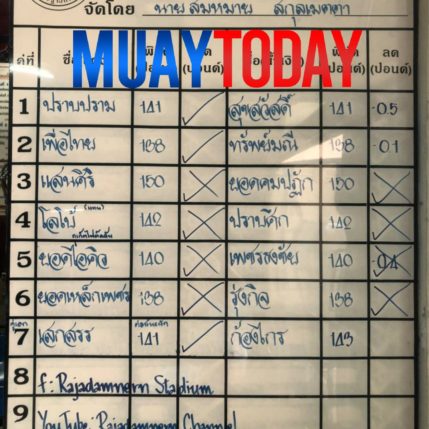 จัดโดย นายสมหมาย สกุลเมตตา
MUAYTODAY
คู่ที่
(ปอนด์)
ลด
(ปอนด์)
1 ปราบปราม 141 ✓ สุขสวัสดิ์ 141 -0.5
2 เพื่อไทย 138 ✓ ทรัพย์มณี 138 -0.1
3 แสนคีรี 150 X ยอดคมปฏัก 150 X
4 โลโบ้ (แทน) 142 X ปราบศึก 142 X
5 ยอดไอคิว 140 X เพชรธงชัย 140 -0.4
6 ยอดเหล็กเพชร 138 X รุ่งกิจ 138 X
คู่เอก
7 เสกสรร 141 ✓ ก้องไกร 143
8 f: Rajadamnern Stadium
9 YouTube: Rajadamnern Channel